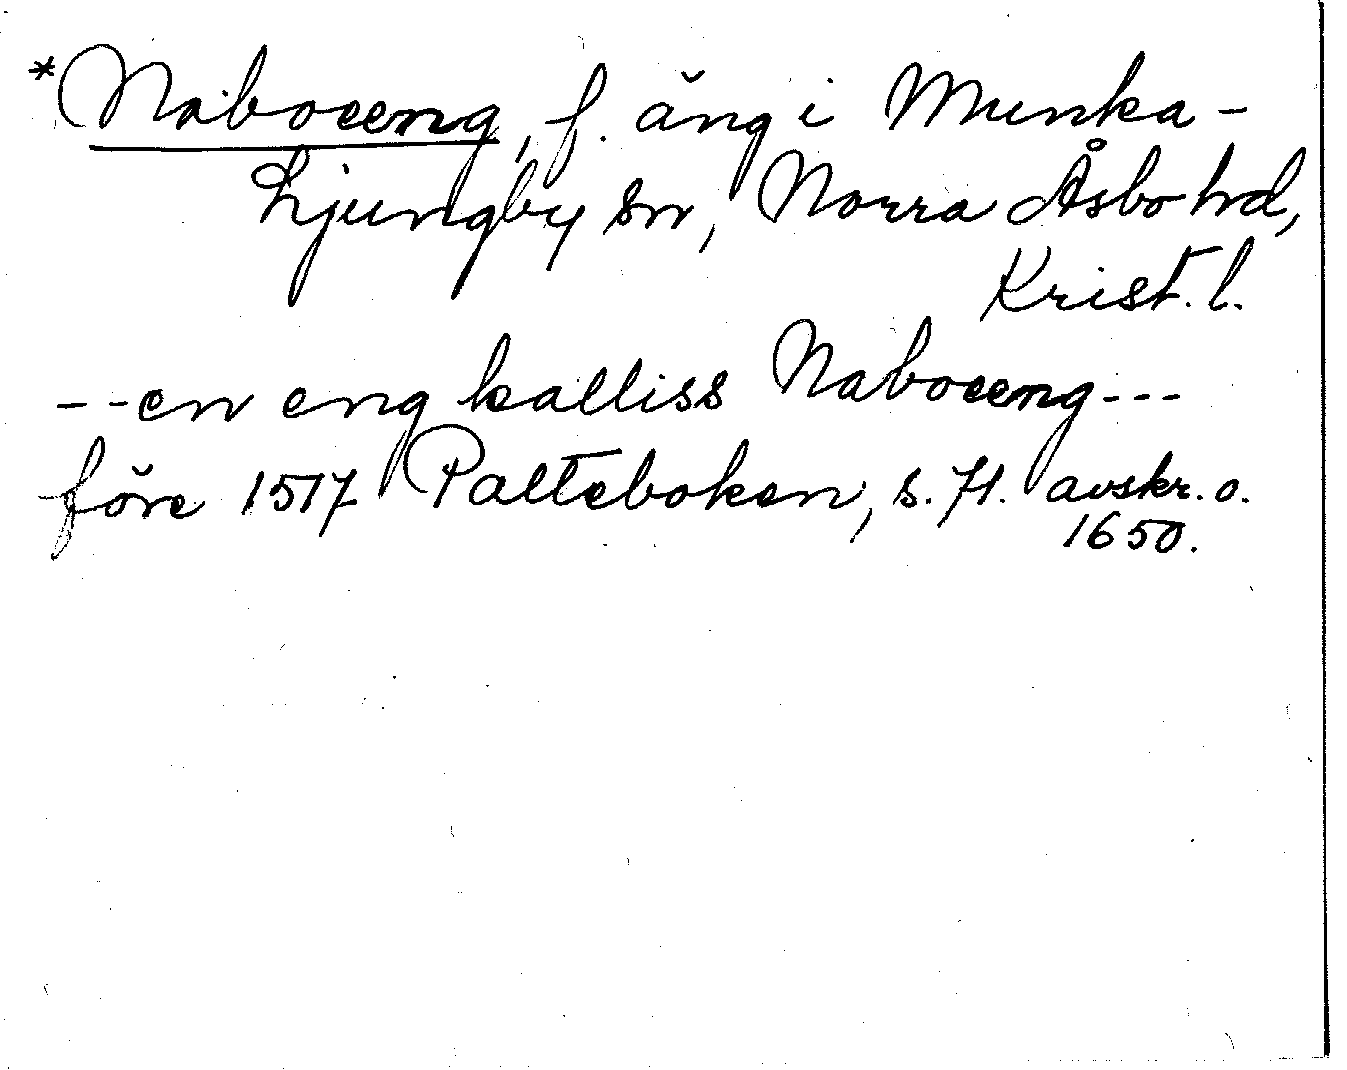 *Naboeeng, f. äng i Munka-
Ljungby sn, Norra Åsbo hd,
Krist. l.
--en eng kalliss Naboeeng---
före 1517 Palteboken, s. 71. avskr. o.
1650.